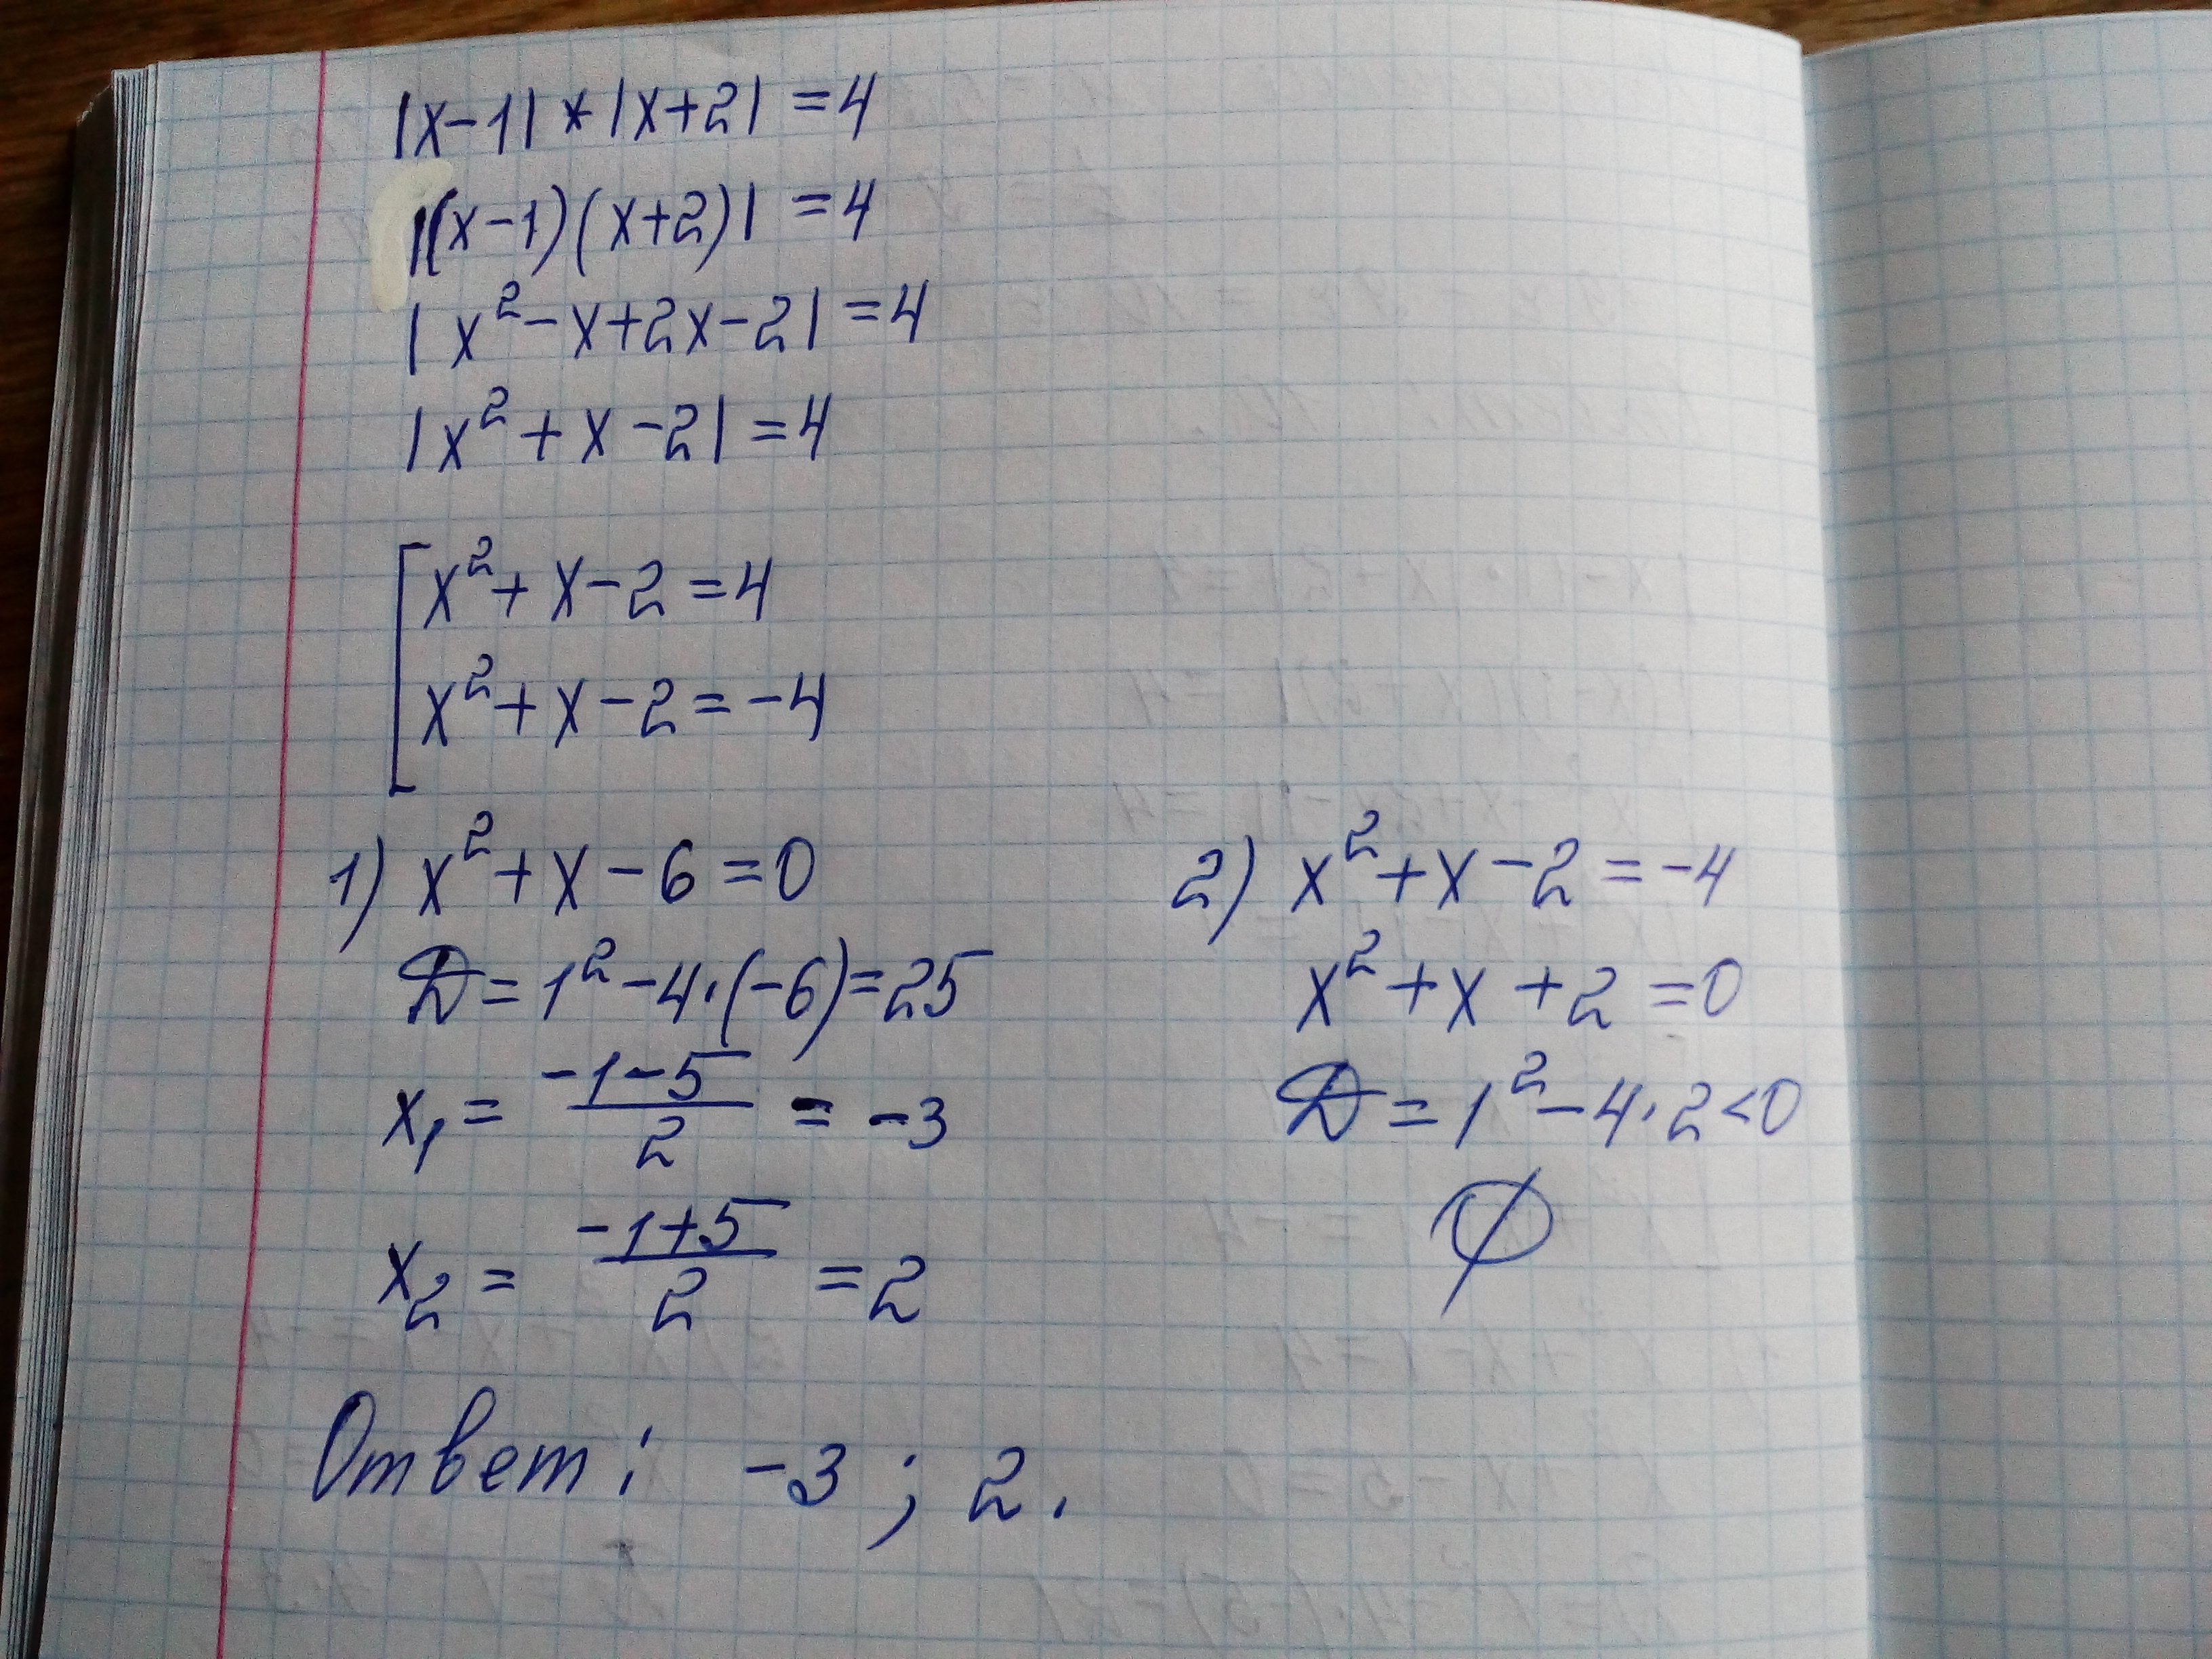 |x-1|*|x+2|=4
|(x-1)(x+2)|=4
|x²-x+2x-2|=4
|x²+x-2|=4
[x²+x-2=4
x²+x-2=-4
1) x²+x-6=0
Д=1²-4·(-6)=25
x₁=(-1-5)/2=-3
x₂=(-1+5)/2=2
2) x²+x-2=-4
x²+x+2=0
Д=1²-4·2<0
∅
Ответ: -3; 2.